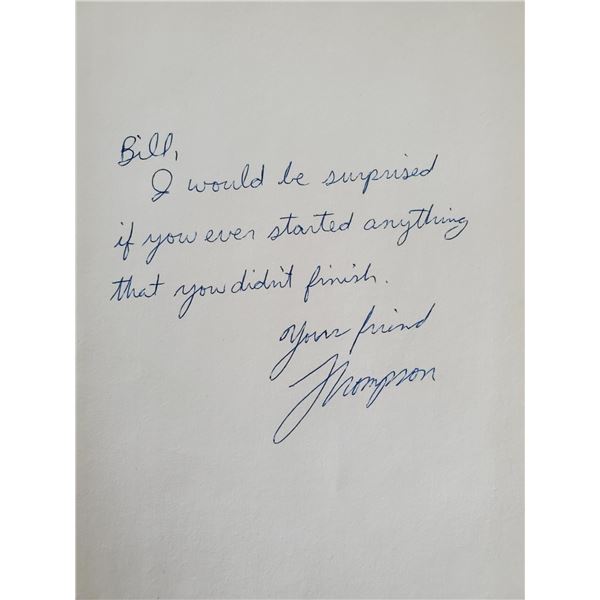 Bill,
I would be surprised
if you ever started anything
that you didn't finish.
Your friend
Thompson